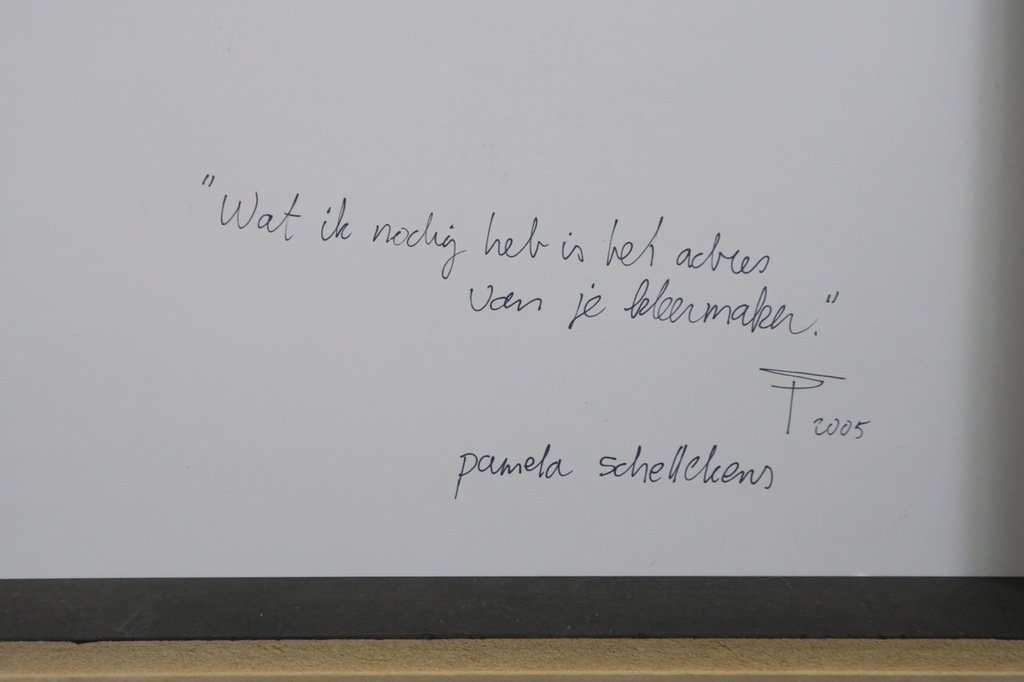 "Wat ik nodig heb is het adres
van je kleermaker."
P 2005
pamela schellekens